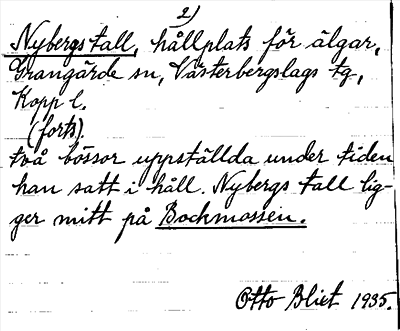 2)
Nybergs tall, hållplats för älgar,
Grangärde sn, Västerbergslags tg,
Kopp l.
(forts).
två bössor uppställda under tiden
han satt i håll. Nybergs tall lig-
ger mitt på Bockmossen.
Otto Blixt 1935.